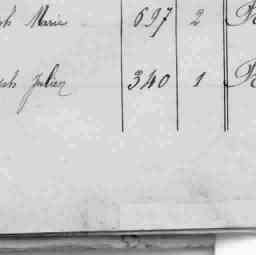 ph Marie 697 2
ph Julien 340 1